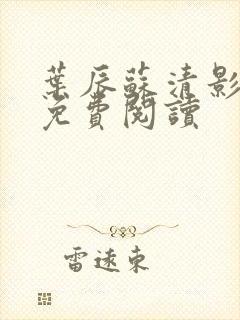 葉辰蘇清影
免費閱讀
雷遠東